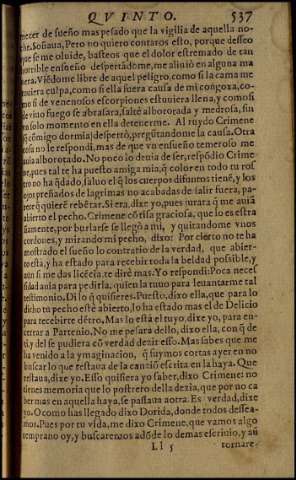 QVINTO. 537
necer de sueño mas pesado que la vigilia de aquella no-
che. Soñaua, Pero no quiero contaros esto, porque desseo
que se me oluide, basteos que el dolor estremado de tan
horrible ensueño despertãdome, me aliuió en alguna ma
nera. Viẽdome libre de aquel peligro, como si la cama me
uuiera culpa, como si ella fuera causa de mi congoxa, co-
mo si de venenosos escorpiones estuuiera llena, y como si
de viuo fuego se abrasara, salté alborotada y medrosa, sin
vn solo momento en ella detenerme. Al ruydo Crimene
q̃ cõmigo dormia despertò, pregũtandome la causa. Otra
cosa no le respondi, mas de que vn ensueño temeroso me
auia alborotado. No poco lo deuia de ser, respõdio Crime
ne, pues tal te ha puesto amiga mia, q̃ color en todo tu ros
tro no ha q̃dado, saluo el q̃ los cuerpos difuntos tienẽ, y los
ojos preñados de lagrimas no acabadas de salir fuera, pa-
rece q̃ quierẽ rebẽtar. Si era, dixe yo, pues jurara q̃ me auiã
abierto el pecho. Crimene cõ risa graciosa, que lo es estra
ñamente, por burlarse se llegò a mi, y quitandome vnos
cordones, y mirando mi pecho, dixo: Por cierto no te ha
mostrado el sueño lo contrario de la verdad, que abier-
to esta, y ha estado para recebir toda la beldad possible, y
aun si me das licẽcia, te dirè mas. Yo respondi: Poca neces
sidad auia para pedirla, quien la tuuo para leuantarme tal
testimonio. Di lo q̃ quisieres. Puesto, dixo ella, que para lo
dicho tu pecho estè abierto, lo ha estado mas el de Delicio
para recebirte dẽtro. Mas lo està el tuyo, dixe yo, para en-
cerrar a Partenio. No me pesara dello, dixo ella, con q̃ de
mi, y del se pudiera cõ verdad dezir esso. Mas sabes que me
ha venido a la ymaginacion, q̃ fuymos cortas ayer en no
buscar lo que restaua de la canciõ escrita en la haya. Que
restaua, dixe yo. Esso quisiera yo saber, dixo Crimene: no
tienes memoria que lo postrero della dezia, que por no ca
ber mas en aquella haya, se passaua a otra. Es verdad, dixe
yo. O como has llegado dixo Dorida, donde todos dessea-
mos. Pues por tu vida, me dixo Crimene, que vamos algo
temprano oy, y buscaremos adõde lo demas escriuio, y aũ
Ll 5 tornare-